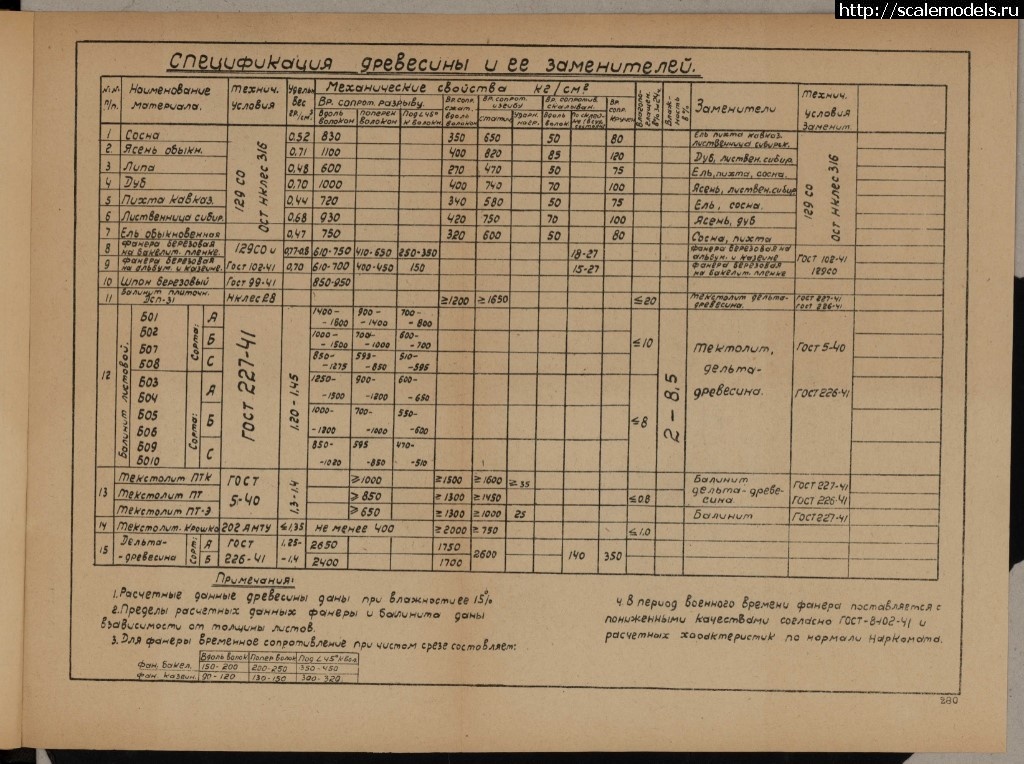 http://scalemodels.ru
Спецификация древесины и ее заменителей.
№№ п/п. Наименование материала. Технич. условия Удельн. вес гр/см³ Механические свойства кг/см² Заменители Технич. условия Заменит.
Вр. сопрот. разрыву. Вр. сопр. сжат. вдоль волокон Вр. сопрот. изгибу Вр. сопротив. скалыван. Вр. сопр. кручен. Влажность в %
Вдоль волокон поперек волокон Под ∠45° к волокн. статич. Ударн. Вдоль волок.
1 Сосна 0,52 830 350 650 50 80 Ель пихта кавказ. лиственница сибирск.
2 Ясень обыкн. 0,71 1100 400 820 85 120 Дуб, листвен. сибир.
3 Липа 0,48 600 270 470 50 75 Ель, пихта, сосна.
4 Дуб 0,70 1000 400 740 70 100 Ясень, листвен. сибир
5 Пихта кавказ. 0,44 720 340 580 50 75 Ель, сосна.
6 Лиственница сибир. 0,68 930 420 750 70 100 Ясень, дуб
7 Ель обыкновенная 0,47 750 320 600 50 80 Сосна, пихта
129 СО ОСТ НКЛЕС 316
129 СО ОСТ НКЛЕС 316
8 Фанера березовая на бакелит. пленке. 129СО и 610-750 410-650 250-380 18-27 Фанера березовая на альбум. и казеине
9 Фанера березовая на альбум. и казеине. Гост 102-41 0,70 610-700 400-450 150 15-27 Фанера березовая на бакелит. пленке
Гост 102-41 129СО
10 Шпон березовый Гост 99-41 850-950
11 Балинит плиточн. ДСП-31 НКЛЕС 28 ≥1200 ≥1650 ≤20 Текстолит дельта-древесина. Гост 227-41 Гост 226-41
12 Балинит листовой. ГОСТ 227-41 1,20 - 1,45 2 - 8,5
Б01 Б02 Б07 Б08 Сорта: ≤10
А 1400- -1800 900- -1400 700- -800
Б 1000- -1500 700- -1000 600- -700
С 850- -1275 595- -850 510- -595
Б03 Б04 Б05 Б06 Б09 Б010 Сорта: ≤8
А 1250- -1500 900- -1200 600- -650
Б 1000- -1200 700- -1000 550- -600
С 850- -1020 595 -850 470- -510
Тектолит, дельта-древесина. Гост 5-40 Гост 226-41
13 Текстолит ПТК ГОСТ 5-40 1,3-1,4 ≥1000 ≥1500 ≥1600 ≥35 Балинит дельта-древесина. Гост 227-41
Текстолит ПТ ≥850 ≥1300 ≥1450 ≤0.8 Гост 226-41
Текстолит ПТ-Э ≥650 ≥1300 ≥1000 25 Балинит Гост 227-41
14 Текстолит. крошка 202 АМТУ ≤1,35 не менее 400 ≥2000 ≥750 ≤1.0
15 Дельта- -древесина Сорт: А ГОСТ 1,25- 2650 1750 2600 140 350
Б 226-41 -1.4 2400 1700
Примечания:
1. Расчетные данные древесины даны при влажности ее 15%
2. Пределы расчетных данных фанеры и балинита даны
взависимости от толщины листов.
3. Для фанеры временное сопротивление при чистом срезе составляет:
Вдоль волок Попер волок Под ∠45° к вол
Фан. бакел. 150-200 200-250 350-450
Фан. казеин. 90-120 130-150 300-320.
4. В период военного времени фанера поставляется с
пониженными качествами согласно ГОСТ-8-102-41 и
расчетных характеристик по нормали Наркомата.
280